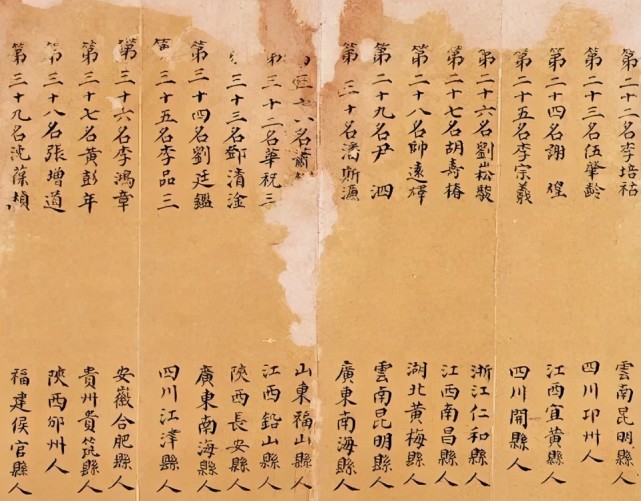 第二十二名李培祜 雲南昆明人
第二十三名伍肇齡 四川邛州人
第二十四名謝煌 江西宜黃縣人
第二十五名李宗羲 四川開縣人
第二十六名劉崧駿 浙江仁和縣人
第二十七名胡壽椿 江西南昌縣人
第二十八名帥遠燡 湖北黃梅縣人
第二十九名尹泗 雲南昆明縣人
第三十名潘斯濂 廣東南海縣人
名蕭 山東福山縣人
三十二名華祝三 江西鉛山縣人
三十三名鄧清淦 陝西長安縣人
第三十四名劉廷鑑 廣東南海縣人
三十五名李品三 四川江津縣人
第三十六名李鴻章 安徽合肥縣人
第三十七名黃彭年 貴州貴筑縣人
第三十八名張增道 陝西邠州人
第三十九名沈葆楨 福建侯官縣人